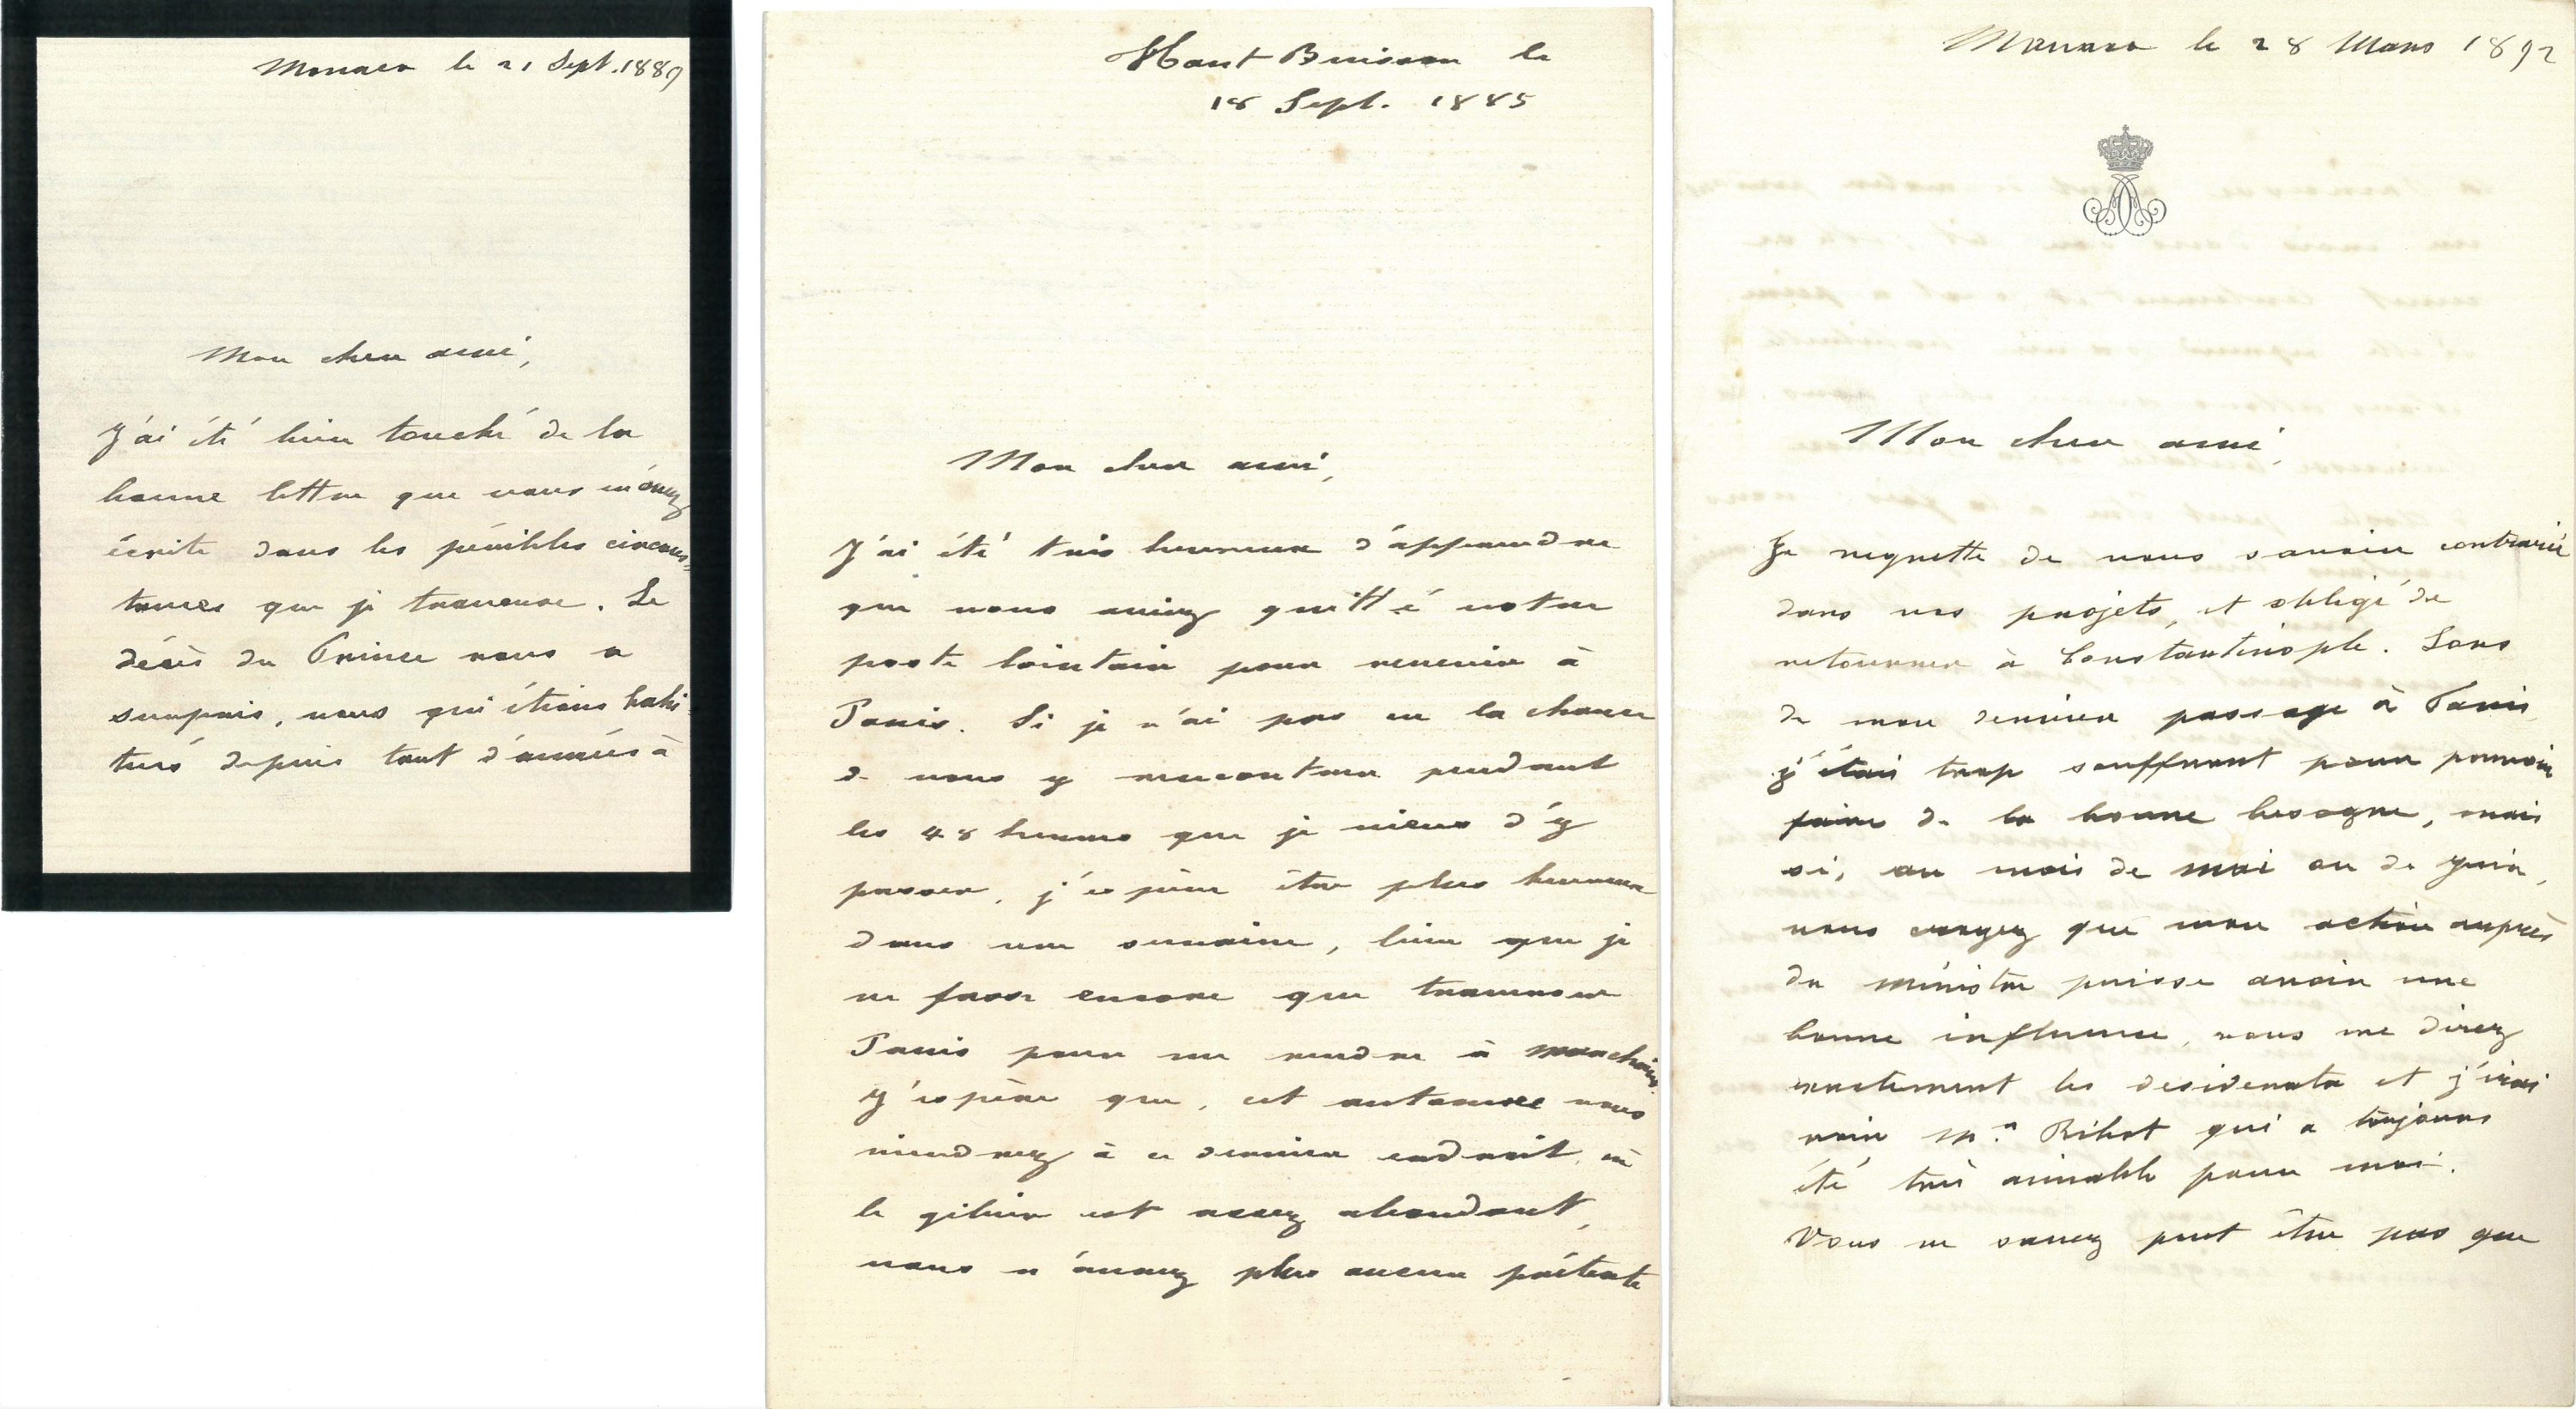 Monaco le 21 Sept. 1889
Mon cher ami,
J'ai été bien touché de la
bonne lettre que vous m'avez
écrite dans les pénibles circons-
tances que je traverse. Le
décès du Prince nous a
surpris, nous qui étions habi-
tués depuis tant d'années à
Haut Buisson le
18 Sept. 1885
Mon cher ami,
J'ai été très heureux d'apprendre
que vous aviez quitté votre
poste lointain pour revenir à
Paris. Si je n'ai pas eu la chance
de vous y rencontrer pendant
les 48 heures que je viens d'y
passer, j'espère être plus heureux
dans une semaine, bien que je
ne fasse encore que traverser
Paris pour me rendre à Marchais.
J'espère que, cet automne vous
viendrez à ce dernier endroit, où
le gibier est assez abondant,
vous n'avez plus aucun prétexte
Monaco le 28 Mars 1892
Mon cher ami,
Je regrette de vous savoir contrarié
dans vos projets, et obligé de
retourner à Constantinople. Lors
de mon dernier passage à Paris
j'étais trop souffrant pour pouvoir
faire de la bonne besogne, mais
si, au mois de mai ou de juin,
vous croyez que mon action auprès
du ministre puisse avoir une
bonne influence, vous me direz
exactement les desiderata et j'irai
voir Mr. Ribot qui a toujours
été très aimable pour moi.
Vous ne savez peut être pas que